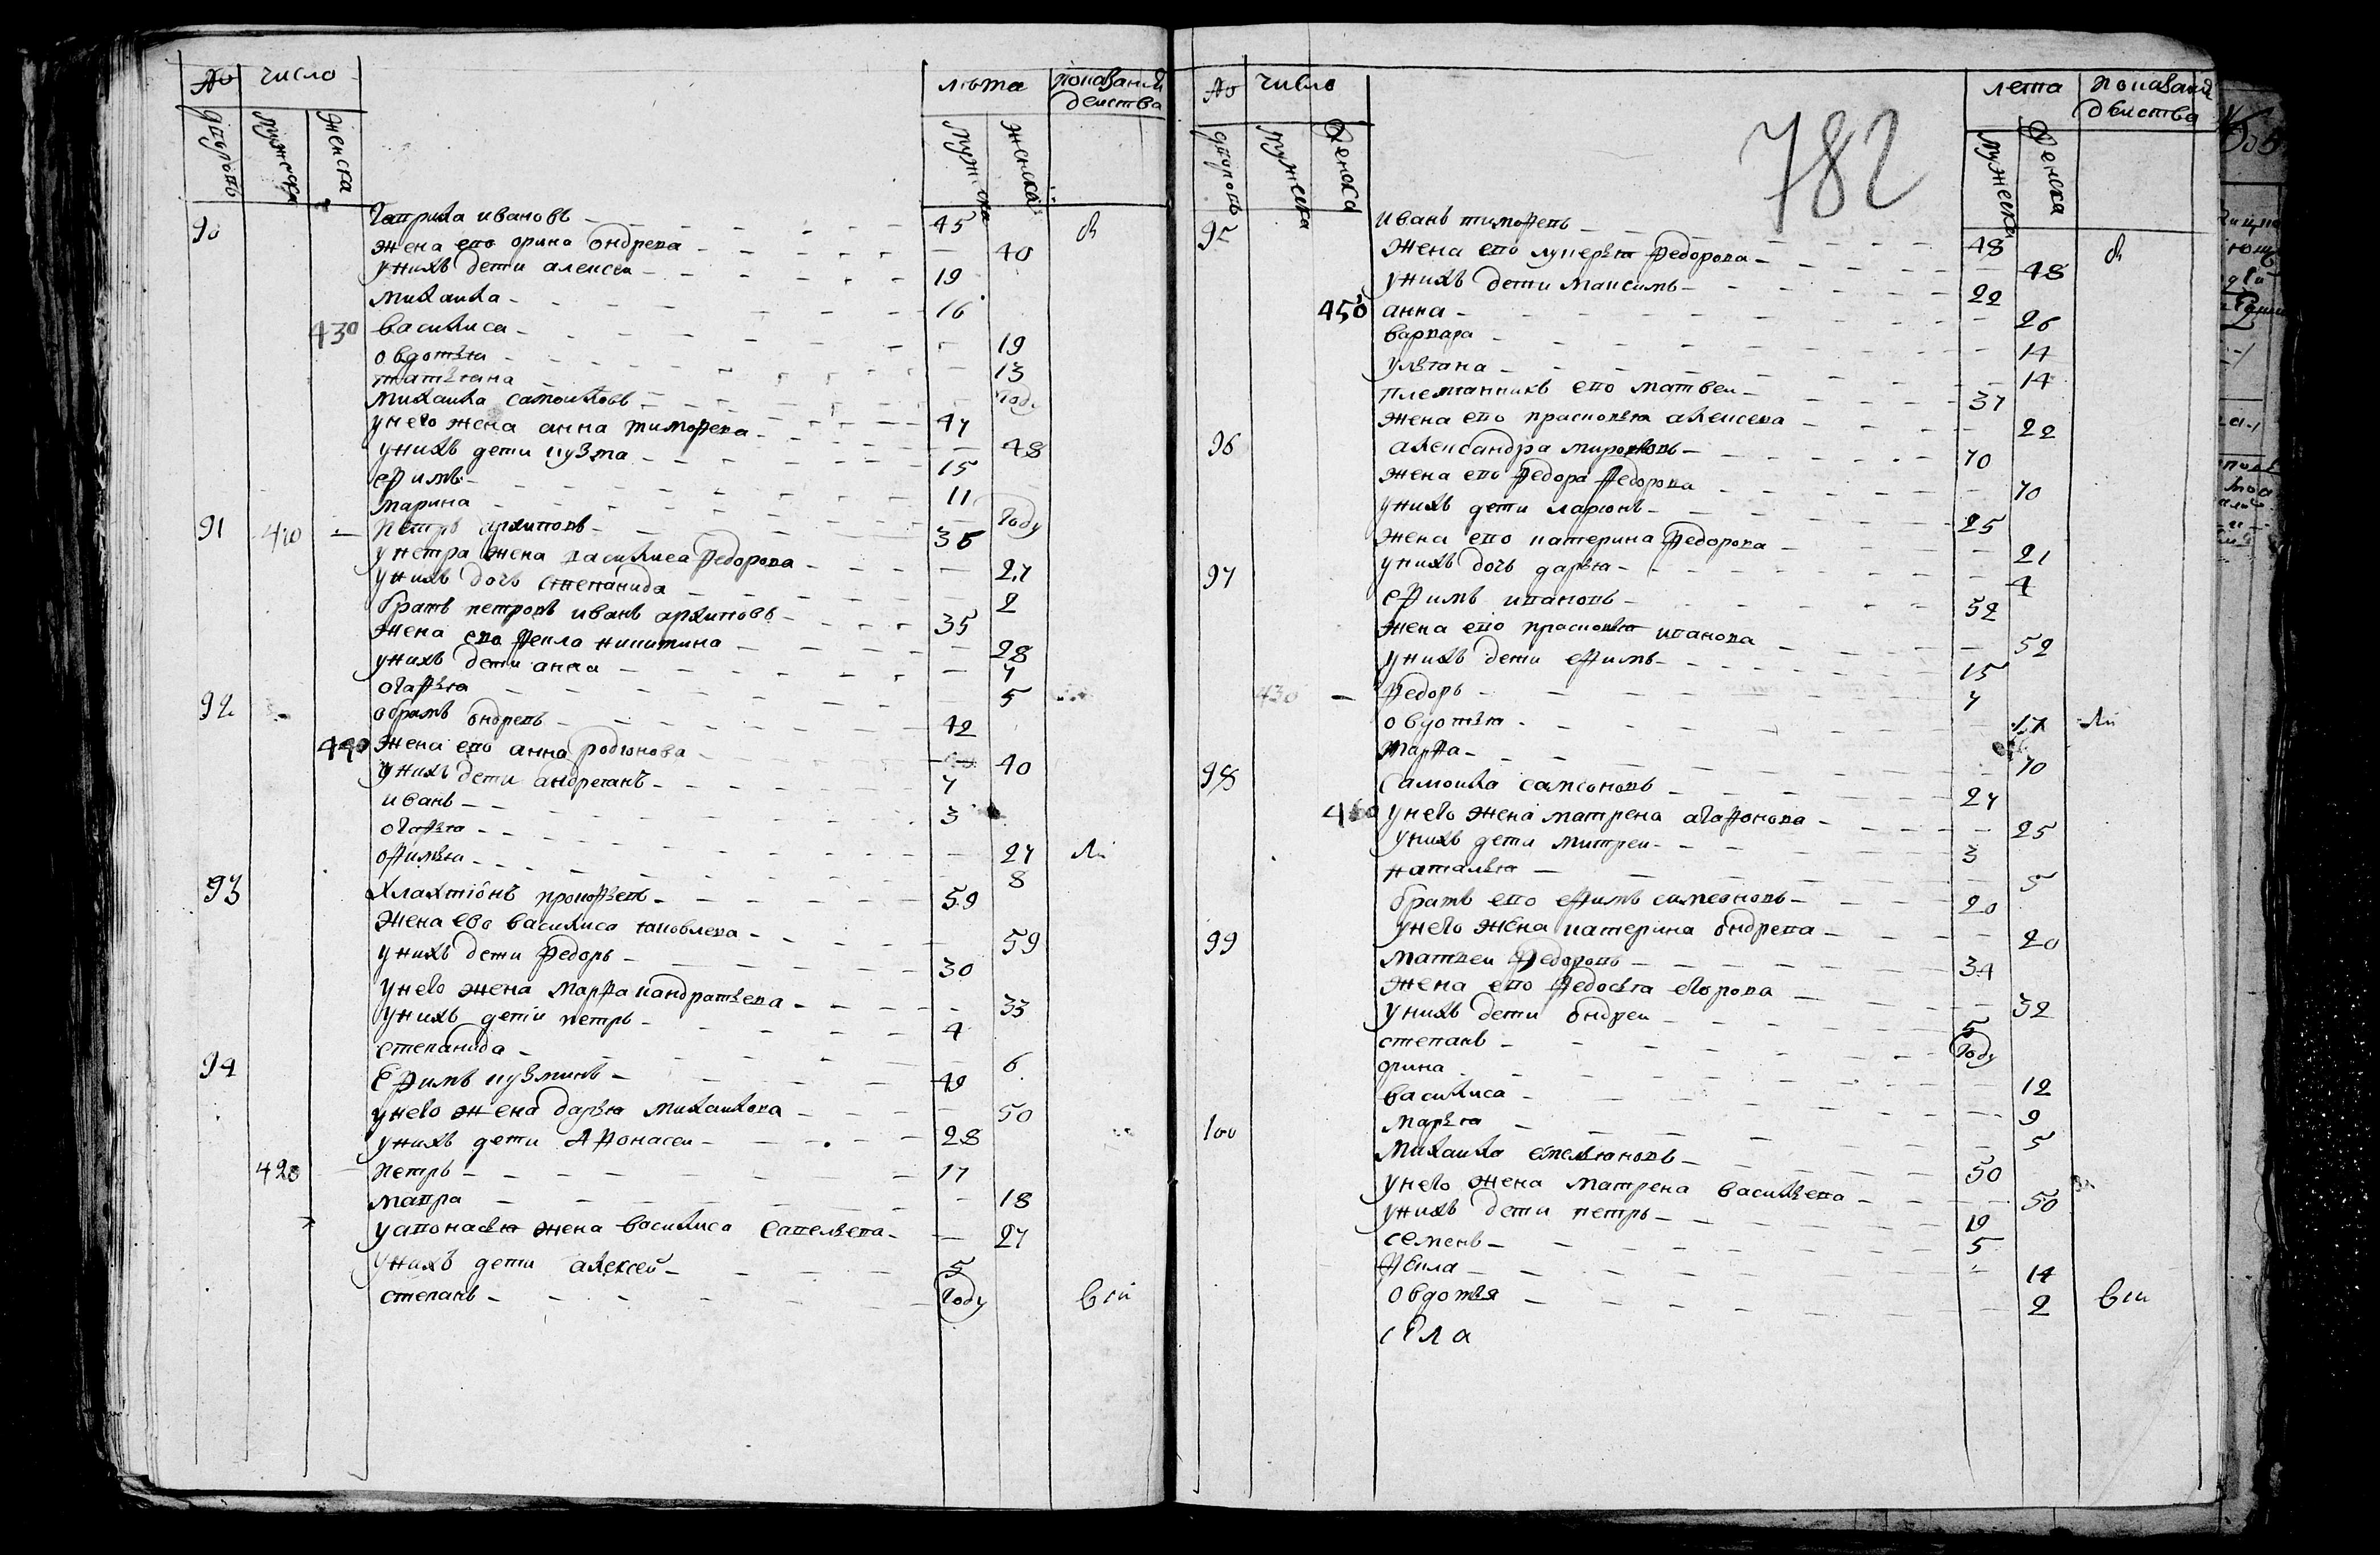 № число лѣта показаніи
действа
дворовъ мужеска женска мужеска женска
90 Гаврила ивановъ 45
жена ево орина ондрева 40
у нихъ дети алексеи 19
михаила 16
430 василиса 19
овдотья 13
татьяна году
михаила самоиловъ 47
у него жена анна тимофева 48
у нихъ дети кузма 15
ефимъ 11
марина году
91 410 Петръ архиповъ 36
у петра жена василиса федорова 27
у нихъ дочь степанида 2
братъ петровъ иванъ архиповъ 35
жена ево фекла никитина 28
у нихъ дети анна 7
огафья 5
92 ондревъ 42
440 жена ево анна родионова 40
у нихъ дети андреянъ 7
иванъ 3
огафья 27 ли
офимья 8
93 Хлахтіонъ прокофьевъ 59
жена ево василиса яковлева 59
у нихъ дети федоръ 30
у него жена марфа кандратьева 33
у нихъ дети петръ 4
степанида 6
94 Ефимъ кузминъ 49
у него жена дарья михаилова 50
у нихъ дети Афонасеи 28
420 петръ 17
мавра 18
у апонасья жена василиса савельева 27
у нихъ дети алексеи 5
степанъ году
№ число лета показаніи
действа
782
дворовъ мужеска женска мужеска женска
95 иванъ тимофевъ 48
жена ево лукерья федорова 48
у нихъ дети максимъ 22
450 анна 26
варвара 14
ульяна 14
племянникъ ево матвеи 37
жена ево прасковья алексева 22
96 александра мироновъ 70
жена ево федора федорова 70
у нихъ дети ларионъ 25
жена ево катерина федорова 21
у нихъ дочь дарья 4
97 ефимъ ивановъ 52
жена ево прасковья иванова 52
у нихъ дети ефимъ 15
430 федоръ 7
овдотья 17 ли
марфа 10
98 Самоила самсоновъ 27
460 у него жена матрена агафонова 25
у нихъ дети митреи 3
наталья 5
братъ ево ефимъ самсоновъ 20
у него жена катерина ондрева 20
99 матвеи федоровъ 34
жена ево федосья егорова 32
у нихъ дети ондреи 5
степанъ году
орина 12
василиса 9
марья 5
100 михаила емельяновъ 50
у него жена матрена васильева 50
у нихъ дети петръ 19
семенъ 5
фекла 14
овдотья 2
села